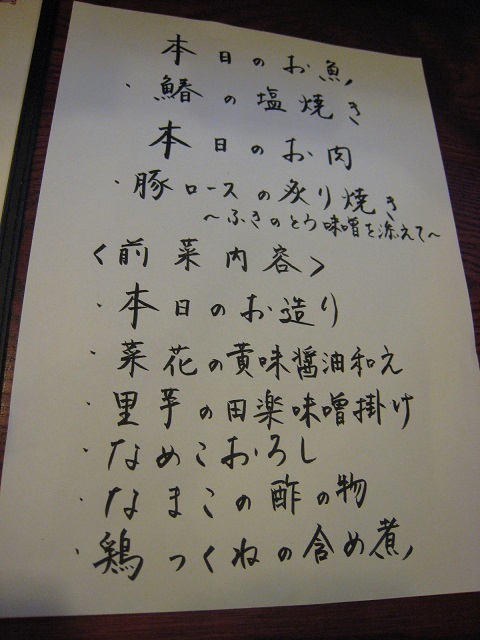 本日のお魚
・鰆の塩焼き
本日のお肉
・豚ロースの炙り焼き
～ふきのとう味噌を添えて～
〈前菜内容〉
・本日のお造り
・菜花の黄味醤油和え
・里芋の田楽味噌掛け
・なめこおろし
・なまこの酢の物
・鶏つくねの含め煮